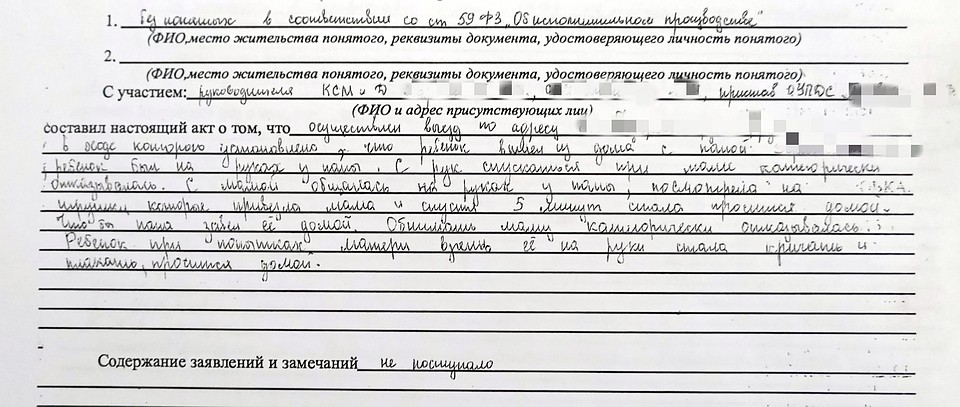 1. Без понятых в соответствии со ст 59 ФЗ „Об исполнительном производстве"
(ФИО,место жительства понятого, реквизиты документа, удостоверяющего личность понятого)
2.
(ФИО,место жительства понятого, реквизиты документа, удостоверяющего личность понятого)
С участием: руководителя КСМ и Д , пристав ОУПДС
(ФИО и адрес присутствующих лиц)
составил настоящий акт о том, что осуществлен выезд по адресу
в ходе которого установлено, что ребенок вышел из дома с папой
ребенок был на руках у папы. С рук спускаться при маме категорически
отказывалась. С мамой общалась на руках у папы, посмотрела на
игрушки которые привезла мама и спустя 5 минут стала проситься домой.
Что бы папа завел её домой. Обнимать маму категорически отказывалась.
Ребенок при попытках матери взять её на руки стала кричать и
плакать, просится домой.
Содержание заявлений и замечаний не поступало